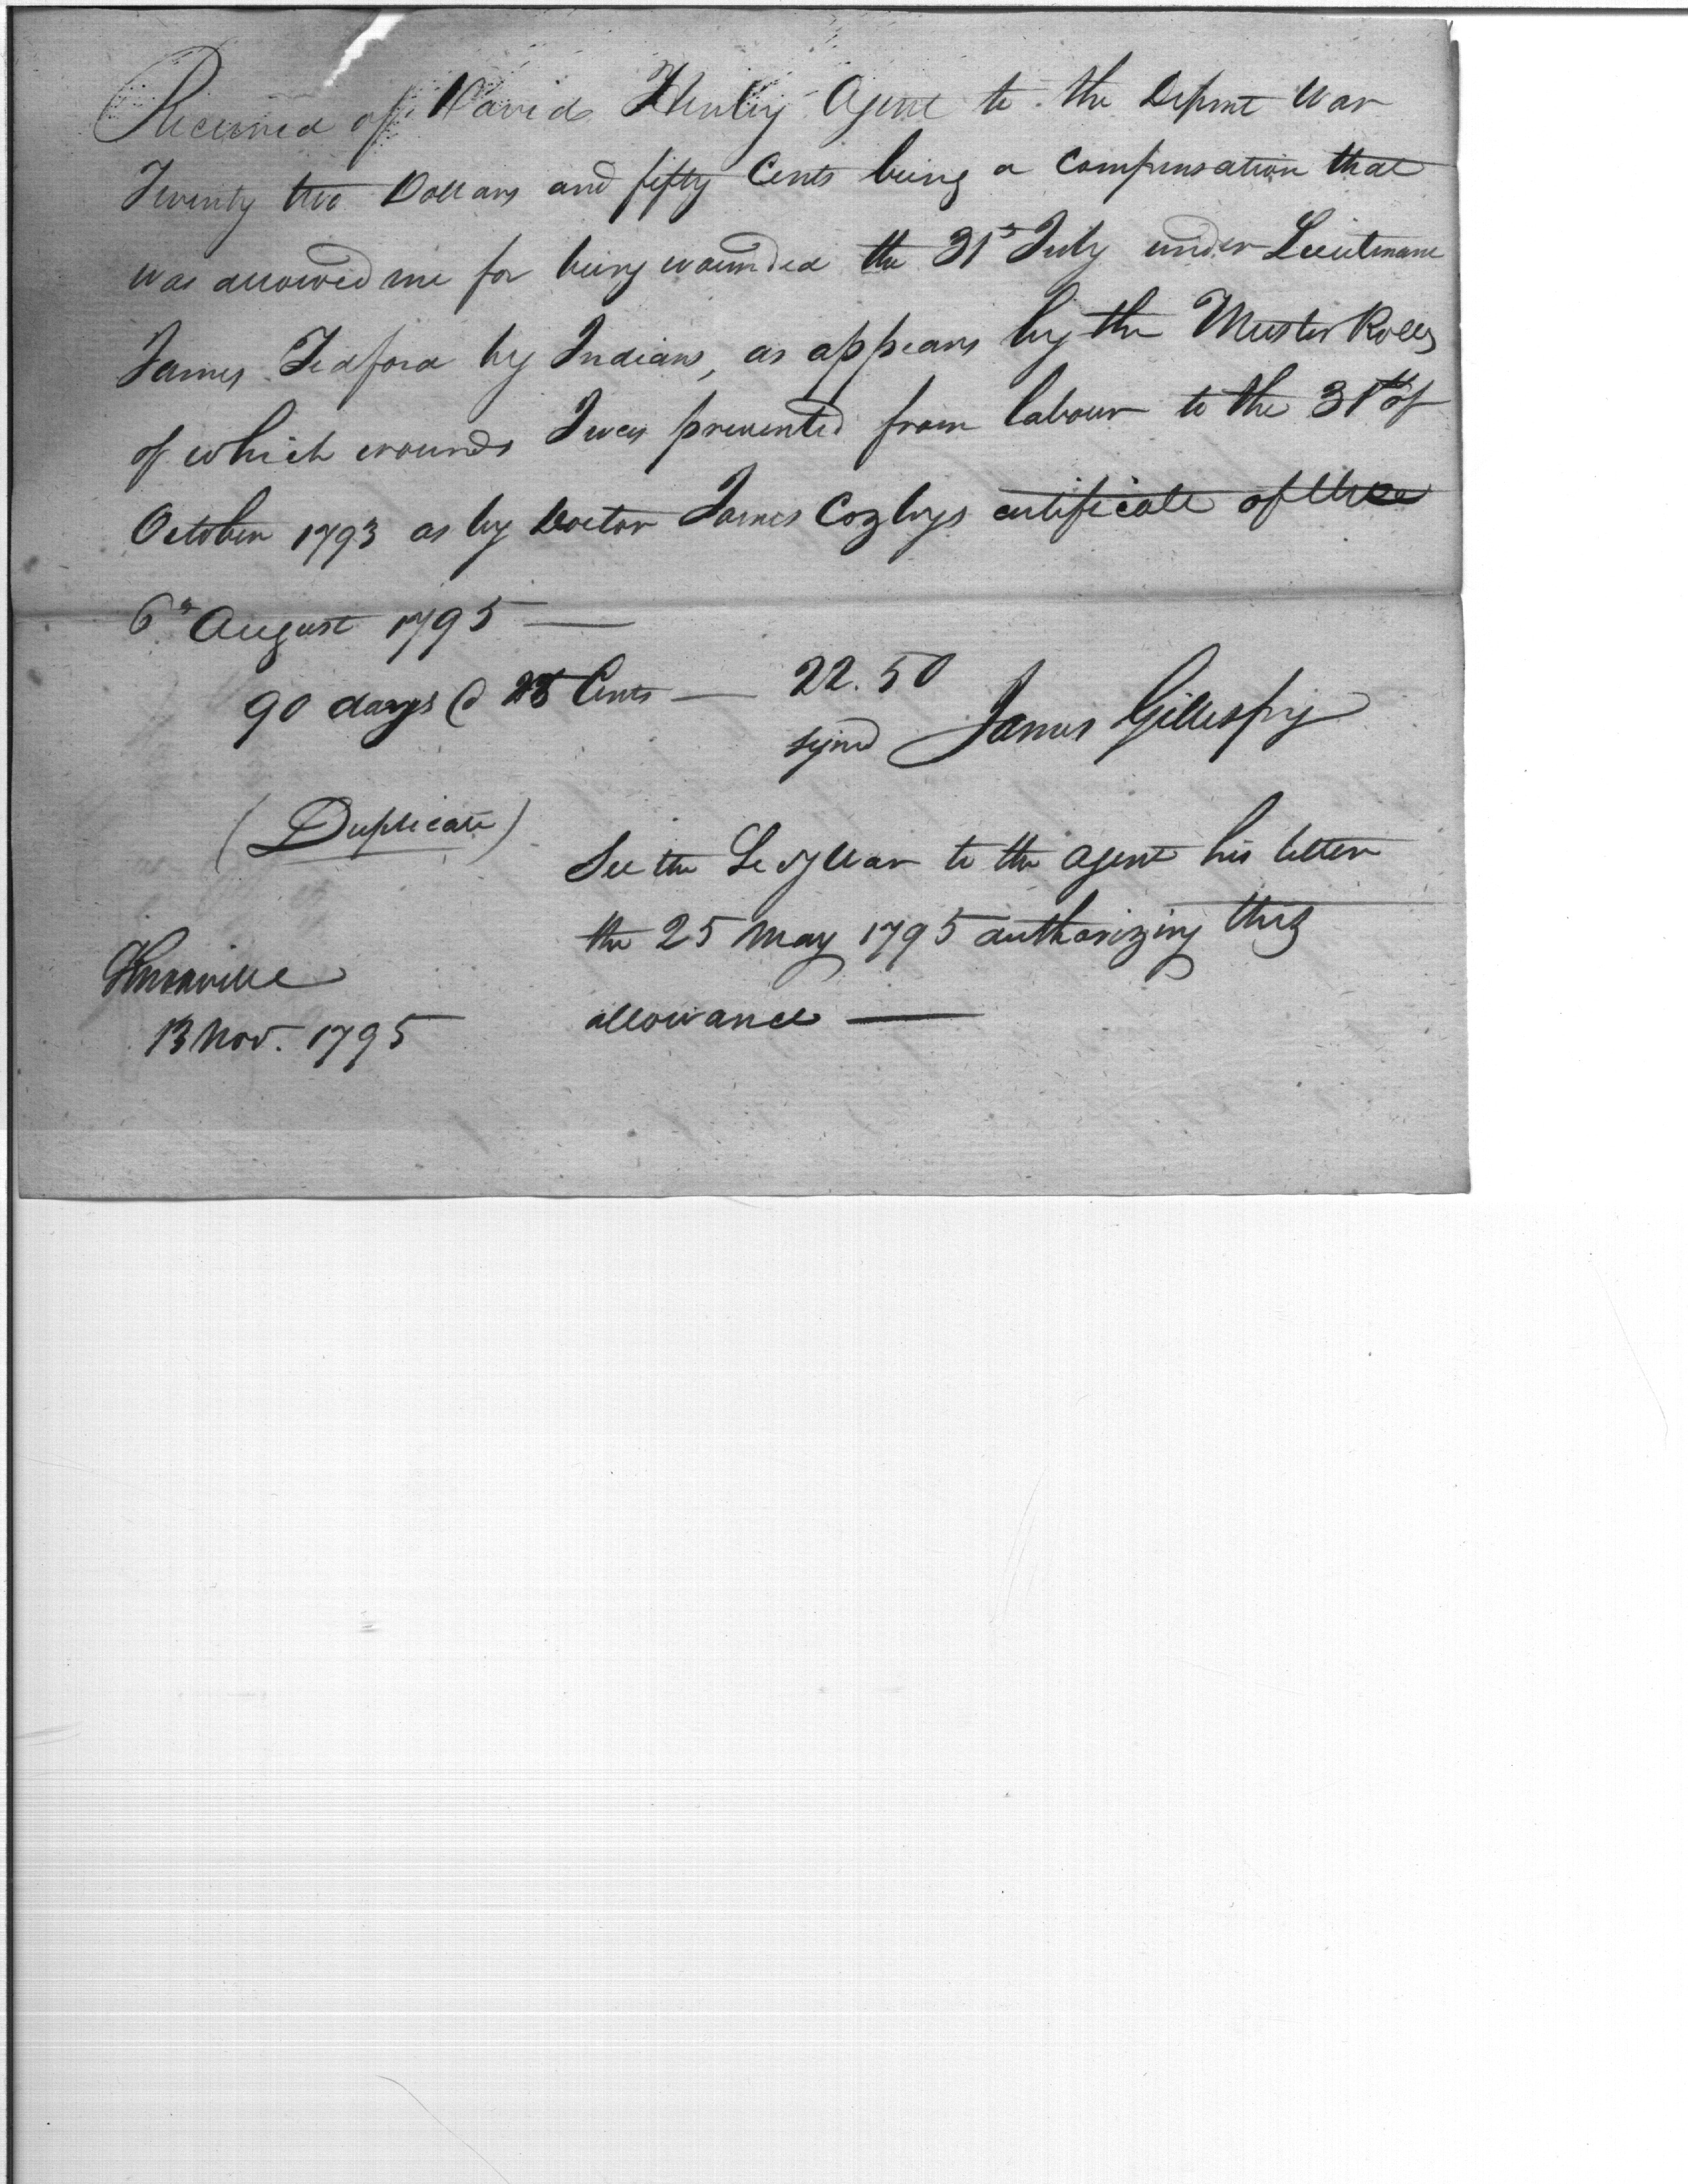 Received of David Henley Agent to the Depmt War
Twenty two Dollars and fifty Cents being a Compensation that
was allowed me for being wounded the 31st July under Lieutenant
James Tedford by Indians, as appears by the Muster Rolls
of which wounds I was prevented from labour to the 31st of
October 1793 as by Doctor James Cozbys certificate of the
6th August 1795 —
90 days @ 25 Cents — 22.50
signd James Gillespy
(Duplicate)
See the Secy War to the Agent his letter
the 25 May 1795 authorizing this
allowance —
Knoxville
13 Nov. 1795